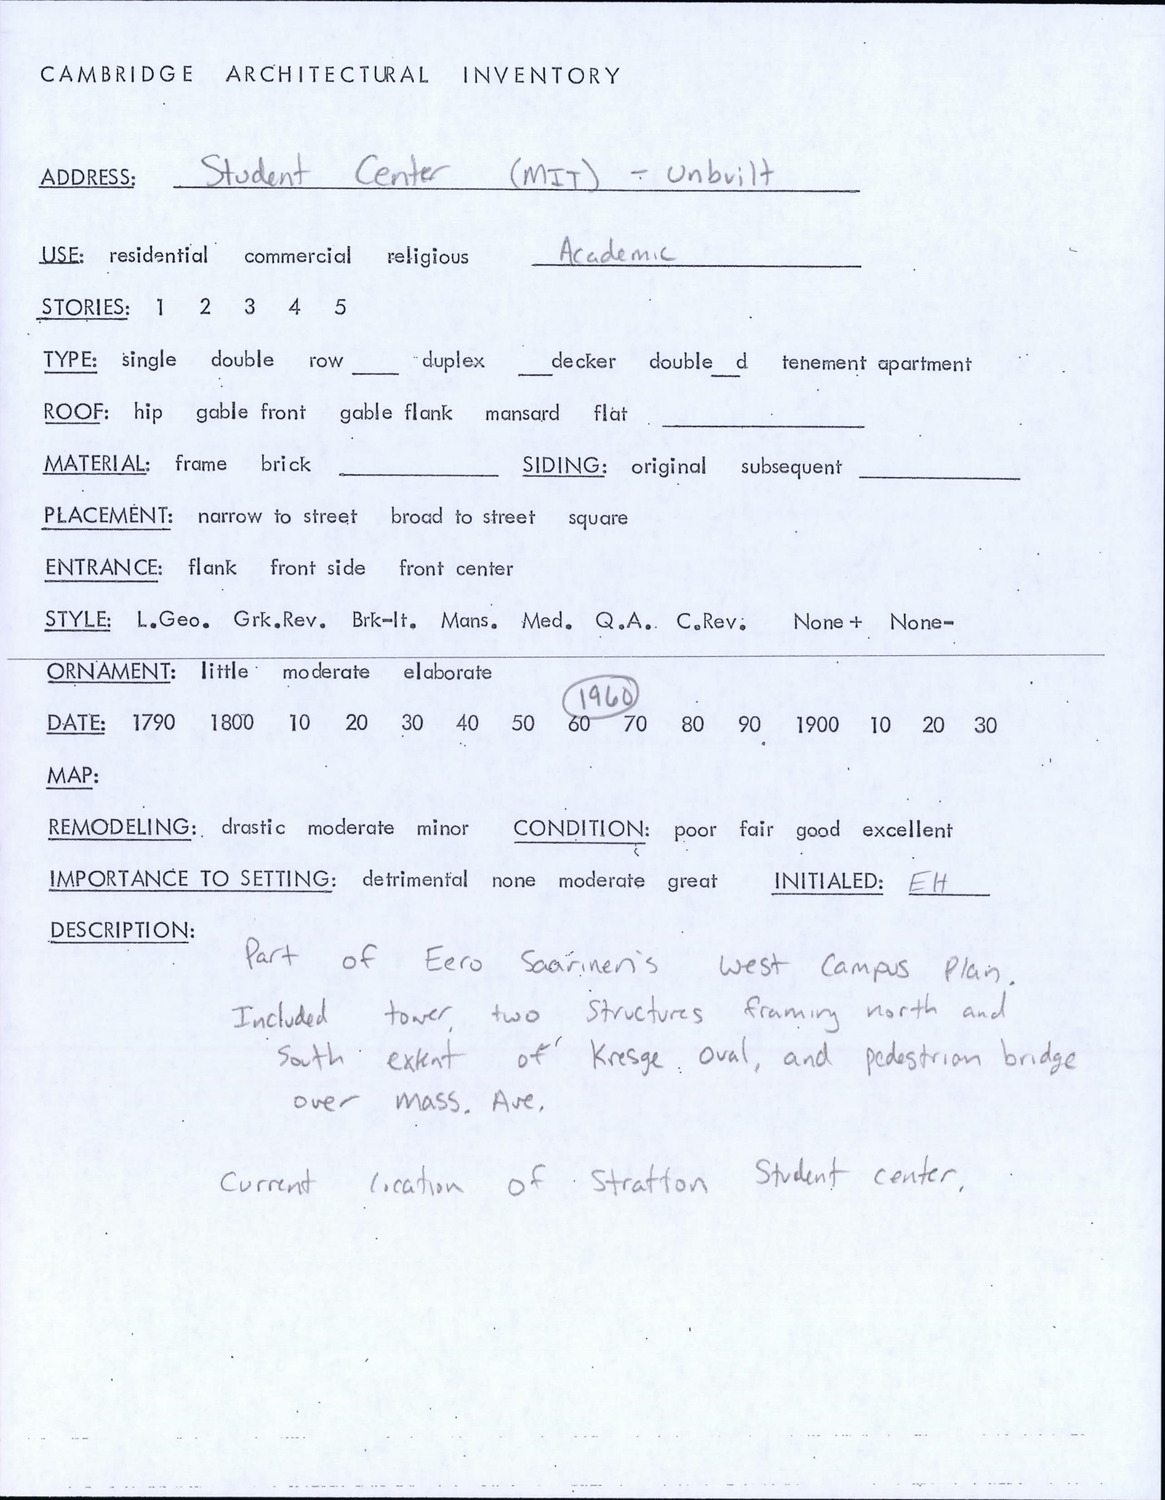 CAMBRIDGE ARCHITECTURAL INVENTORY
ADDRESS: Student Center (MIT) - Unbuilt
USE: residential commercial religious Academic
STORIES: 1 2 3 4 5
TYPE: single double row ____ duplex ___decker double__d tenement apartment
ROOF: hip gable front gable flank mansard flat ____
MATERIAL: frame brick ____ SIDING: original subsequent ____
PLACEMENT: narrow to street broad to street square
ENTRANCE: flank front side front center
STYLE: L.Geo. Grk.Rev. Brk-It. Mans. Med. Q.A. C.Rev. None+ None-
ORNAMENT: little moderate elaborate
1960
DATE: 1790 1800 10 20 30 40 50 60 70 80 90 1900 10 20 30
MAP:
REMODELING: drastic moderate minor CONDITION: poor fair good excellent
IMPORTANCE TO SETTING: detrimental none moderate great INITIALED: EH
DESCRIPTION:
Part of Eero Saarinen's West Campus Plan.
Included tower, two structures framing north and
South extent of Kresge Oval, and pedestrian bridge
over Mass. Ave.
Current location of Stratton Student center.